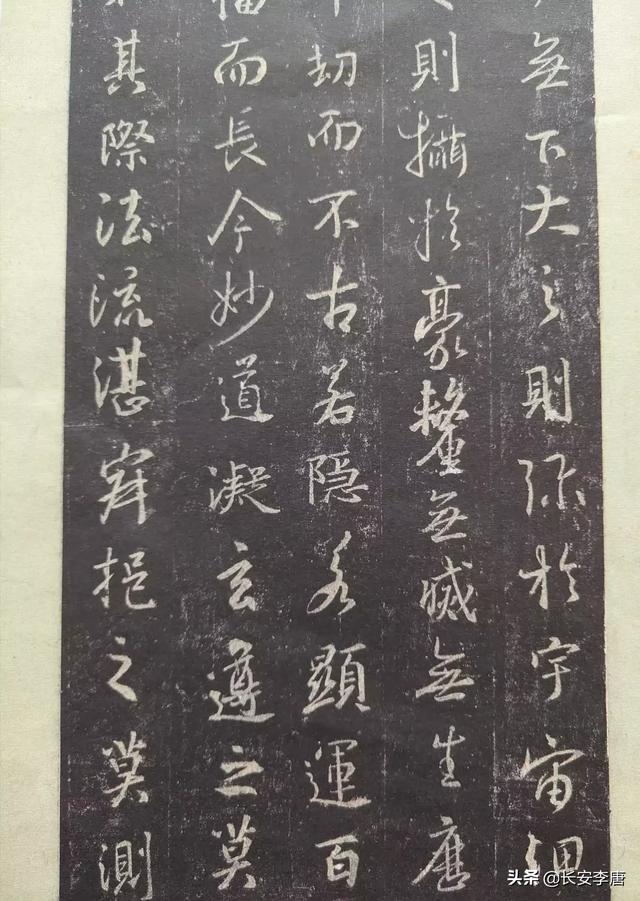 無下大之則彌於宇宙細
則攝於豪釐無滅無生歷
劫而不古若隱若顯運百
福而長今妙道凝玄遵之莫
其際法流湛寂挹之莫測
头条 @长安李唐